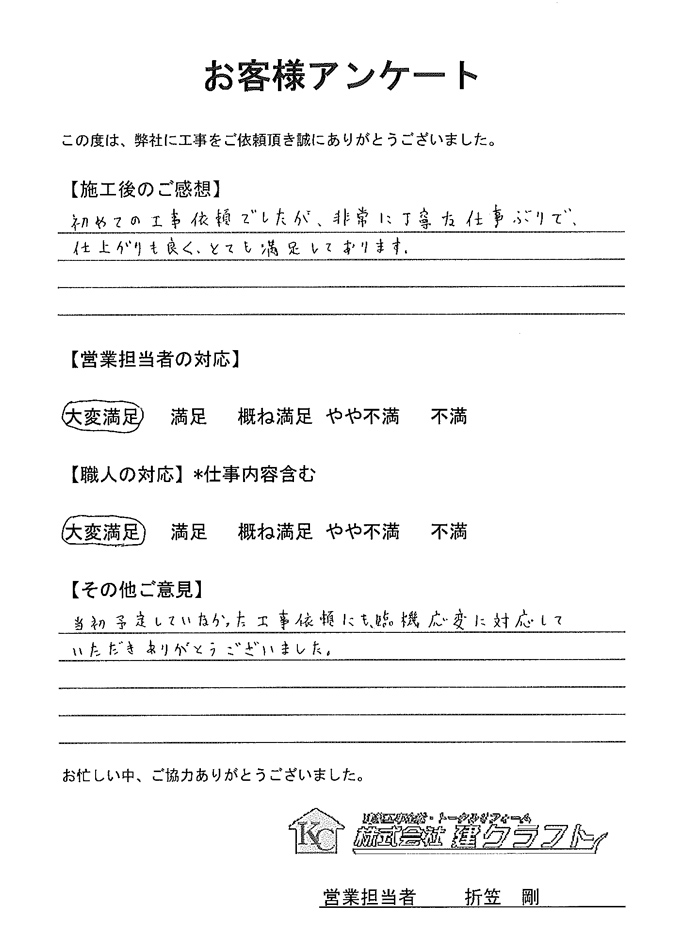 お客様アンケート
この度は、弊社に工事をご依頼頂き誠にありがとうございました。
【施工後のご感想】
初めての工事依頼でしたが、非常に丁寧な仕事ぶりで、
仕上がりも良く、とても満足しております。
【営業担当者の対応】
大変満足 満足 概ね満足 やや不満 不満
【職人の対応】*仕事内容含む
大変満足 満足 概ね満足 やや不満 不満
【その他ご意見】
当初予定していなかった工事依頼にも、臨機応変に対応して
いただきありがとうございました。
お忙しい中、ご協力ありがとうございました。
・トータルリフォーム
KC 株式会社 建クラフト
営業担当者 折笠 剛